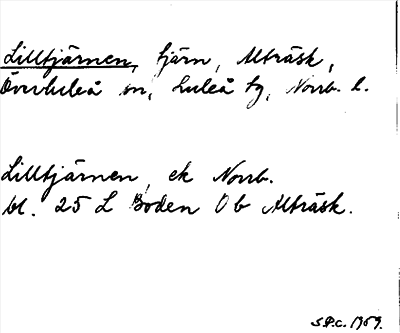 Lilltjärnen, tjärn, Alträsk,
Överluleå sn, Luleå tg, Norrb. l.
Lilltjärnen, ek Norrb.
bl. 25 L Boden Ob Alträsk.
S.P.C. 1959.